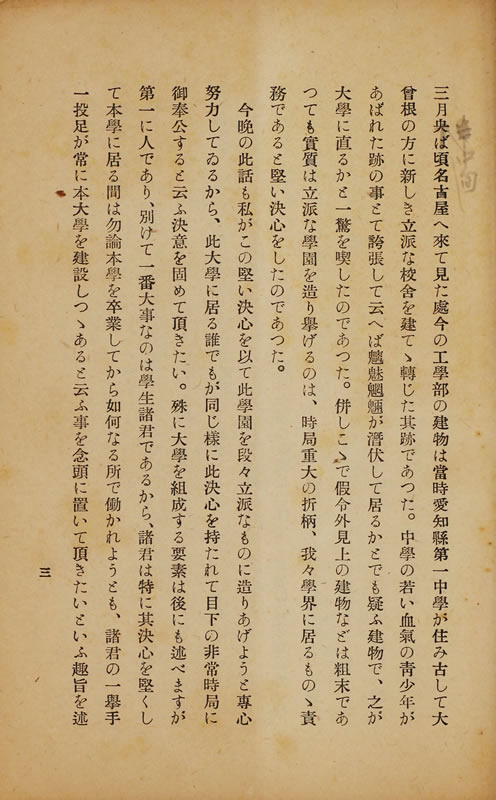 三月央ば頃名古屋へ來て見た處今の工學部の建物は當時愛知縣第一中學が住み古して大
曾根の方に新しき立派な校舍を建てゝ轉じた其跡であつた。中學の若い血氣の靑少年が
あばれた跡の事とて誇張して云へば魑魅魍魎が濳伏して居るかとでも疑ふ建物で、之が
大學に直るかと一驚を喫したのであつた。併しこゝで假令外見上の建物などは粗末であ
つても實質は立派な學園を造り擧げるのは、時局重大の折柄、我々學界に居るものゝ責
務であると堅い決心をしたのであつた。
今晩の此話も私がこの堅い決心を以て此學園を段々立派なものに造りあげようと專心
努力してゐるから、此大學に居る誰でもが同じ樣に此決心を持たれて目下の非常時局に
御奉公すると云ふ決意を固めて頂きたい。殊に大學を組成する要素は後にも述べますが
第一に人であり、別けて一番大事なのは學生諸君であるから、諸君は特に其決心を堅くし
て本學に居る間は勿論本學を卒業してから如何なる所で働かれようとも、諸君の一擧手
一投足が常に本大學を建設しつゝあると云ふ事を念頭に置いて頂きたいといふ趣旨を述
三